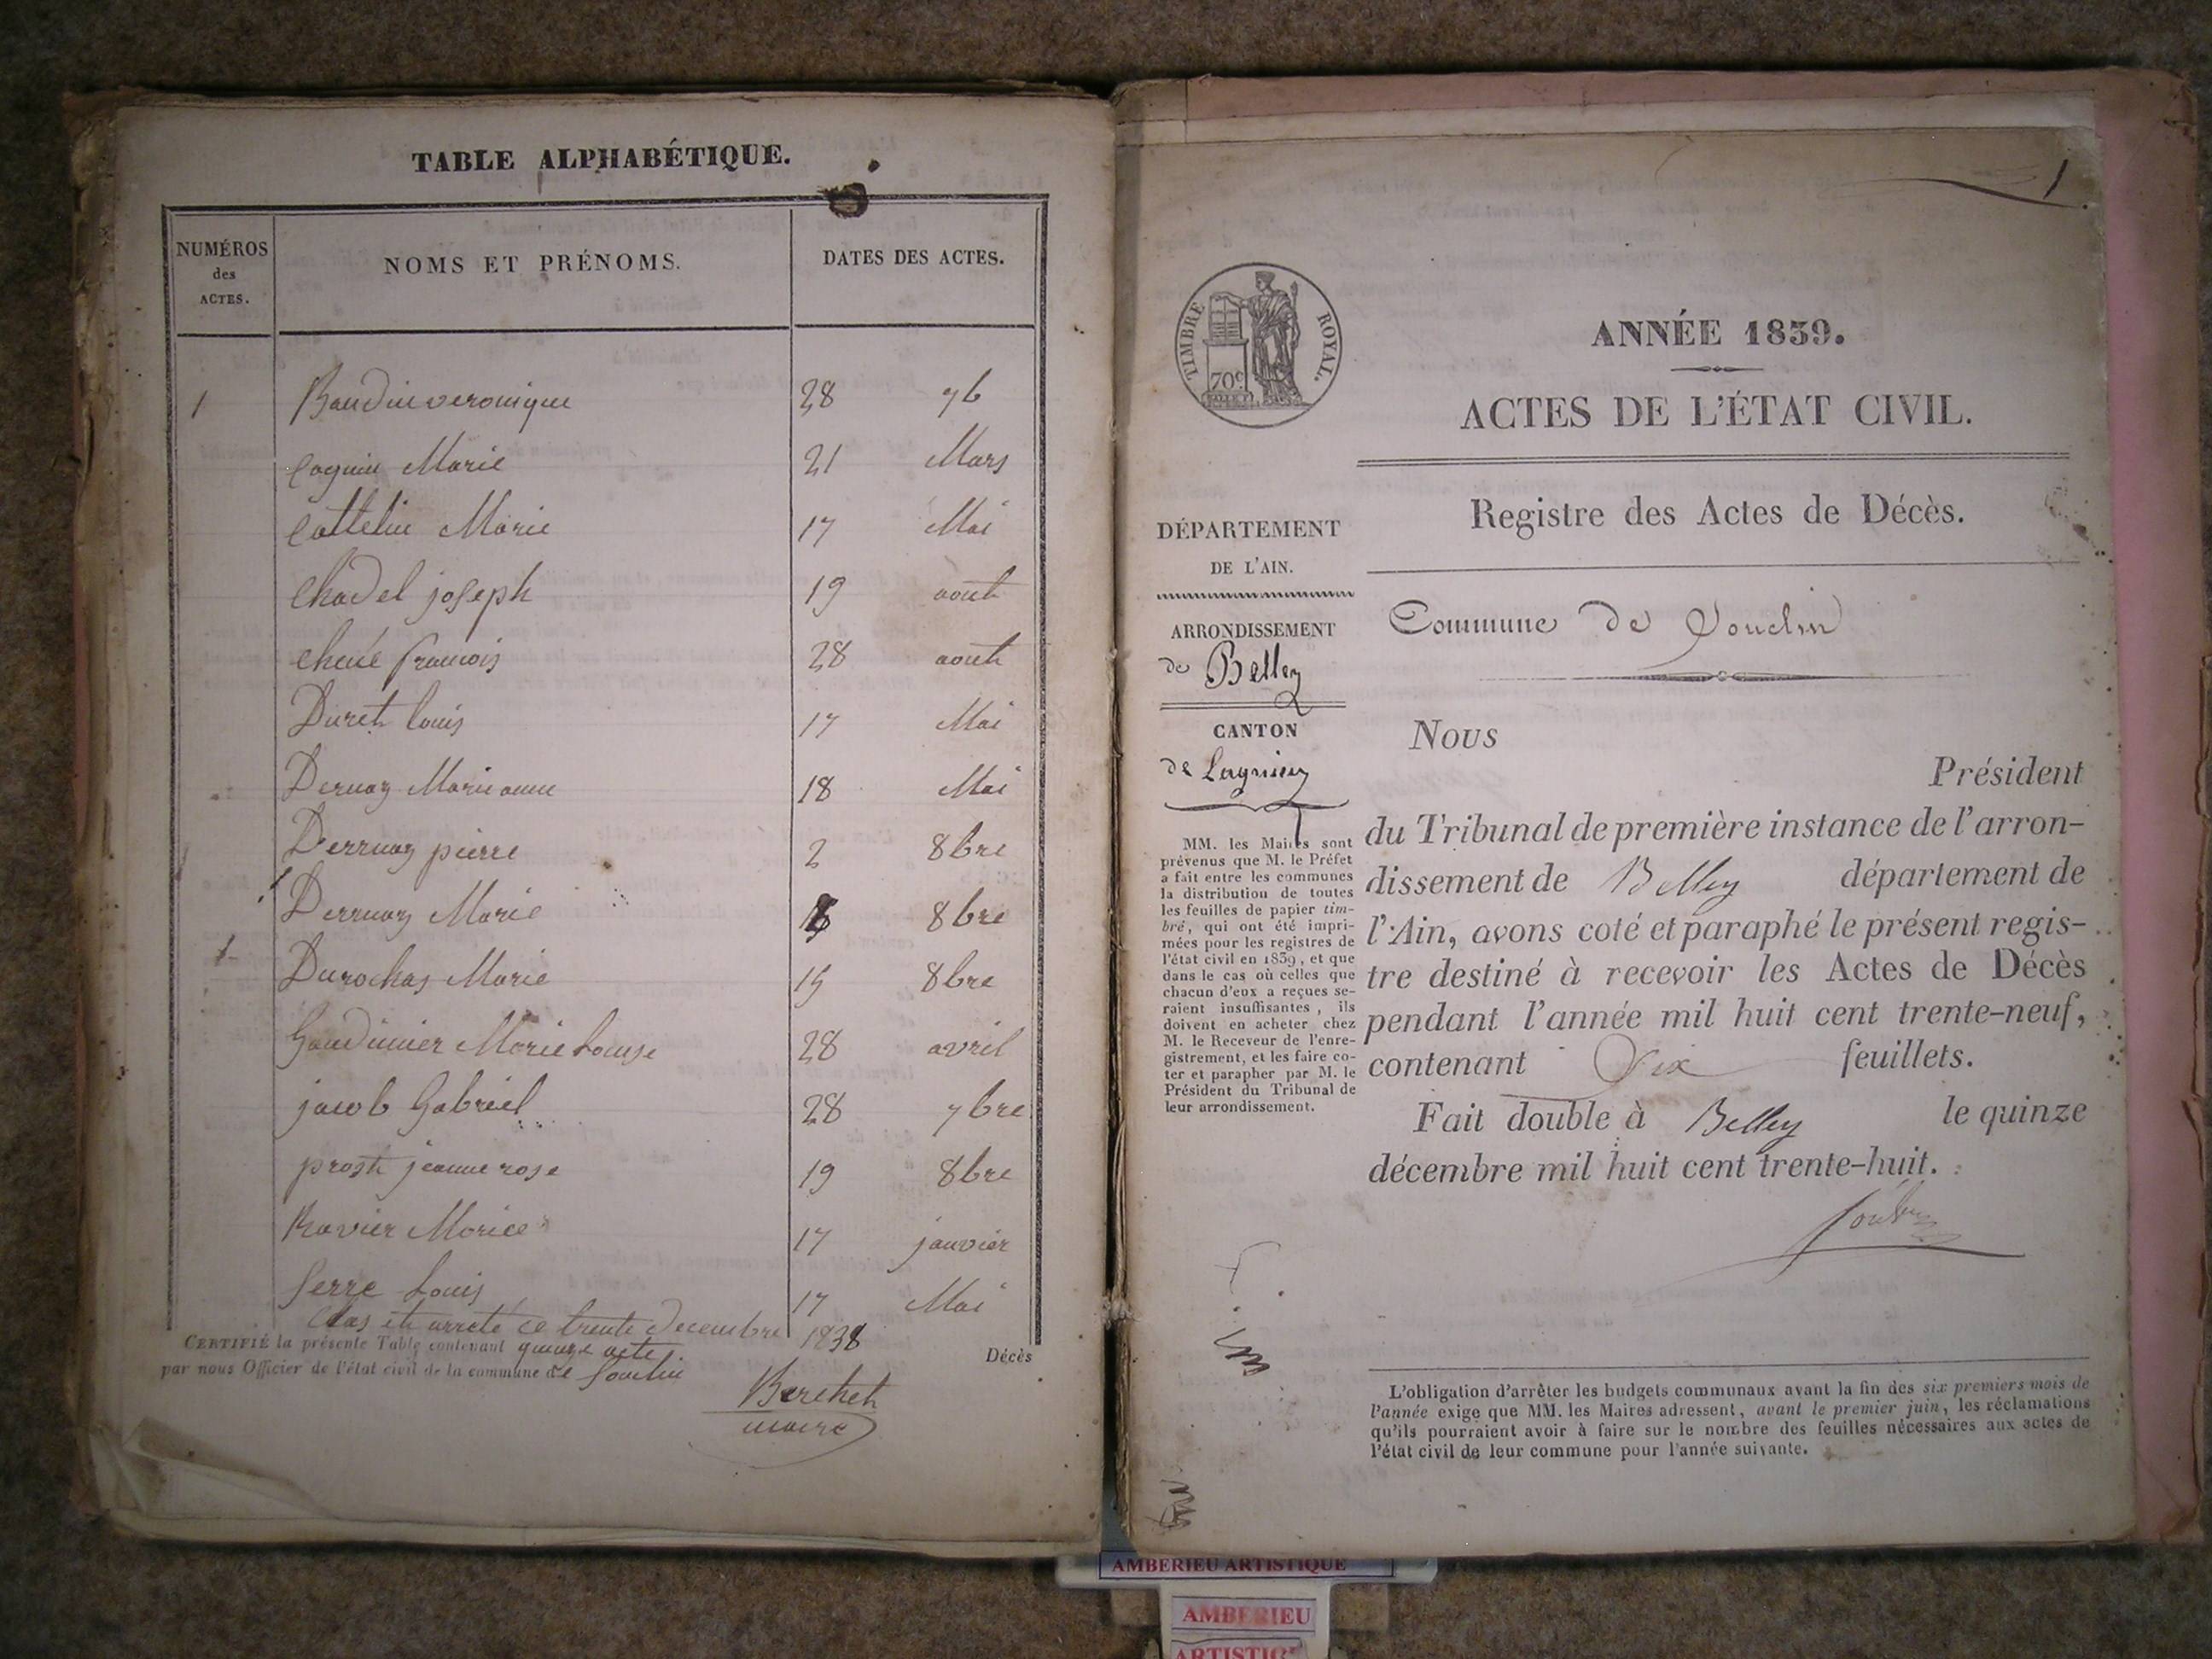 TABLE ALPHABÉTIQUE.
NUMÉROS
des
ACTES.
NOMS ET PRÉNOMS.
DATES DES ACTES.
1 Baudin veronique 28 7b
Coguin Marie 21 Mars
Cottelin Marie 17 Mai
Chadel joseph 19 aout
françois 28 aout
Duret louis 17 Mai
Dernaz Marie anne 18 Mai
Derruaz pierre 2 8bre
Derruaz Marie 8bre
Durochas Marie 15 8bre
Marie Louise 28 avril
jacob Gabriel 28 7bre
prost jeanne rose 19 8bre
Ravier Marie 17 janvier
Serre Louis 17 Mai
Clos et arreté ce trente Decembre 1838
CERTIFIÉ la présente Table contenant quinze acte
par nous Officier de l'état civil de la commune de Souclin
Décès
Berthet
maire
1
TIMBRE ROYAL.
70c
ANNÉE 1839.
ACTES DE L'ÉTAT CIVIL.
Registre des Actes de Décès.
DÉPARTEMENT
DE L'AIN.
ARRONDISSEMENT
de Belley
CANTON
de Lagnieu
MM. les Maires sont
prévenus que M. le Préfet
a fait entre les communes
la distribution de toutes
les feuilles de papier tim-
bré, qui ont été impri-
mées pour les registres de
l'état civil en 1839, et que
dans le cas où celles que
chacun d'eux a reçues se-
raient insuffisantes, ils
doivent en acheter chez
M. le Receveur de l'enre-
gistrement, et les faire co-
ter et parapher par M. le
Président du Tribunal de
leur arrondissement.
Commune de Souclin
Nous
Président
du Tribunal de première instance de l'arron-
dissement de Belley département de
l'Ain, avons coté et paraphé le présent regis-
tre destiné à recevoir les Actes de Décès
pendant l'année mil huit cent trente-neuf,
contenant Six feuillets.
Fait double à Belley le quinze
décembre mil huit cent trente-huit.
L'obligation d'arrêter les budgets communaux avant la fin des six premiers mois de
l'année exige que MM. les Maires adressent, avant le premier juin, les réclamations
qu'ils pourraient avoir à faire sur le nombre des feuilles nécessaires aux actes de
l'état civil de leur commune pour l'année suivante.
AMBERIEU ARTISTIQUE
AMBERIEU